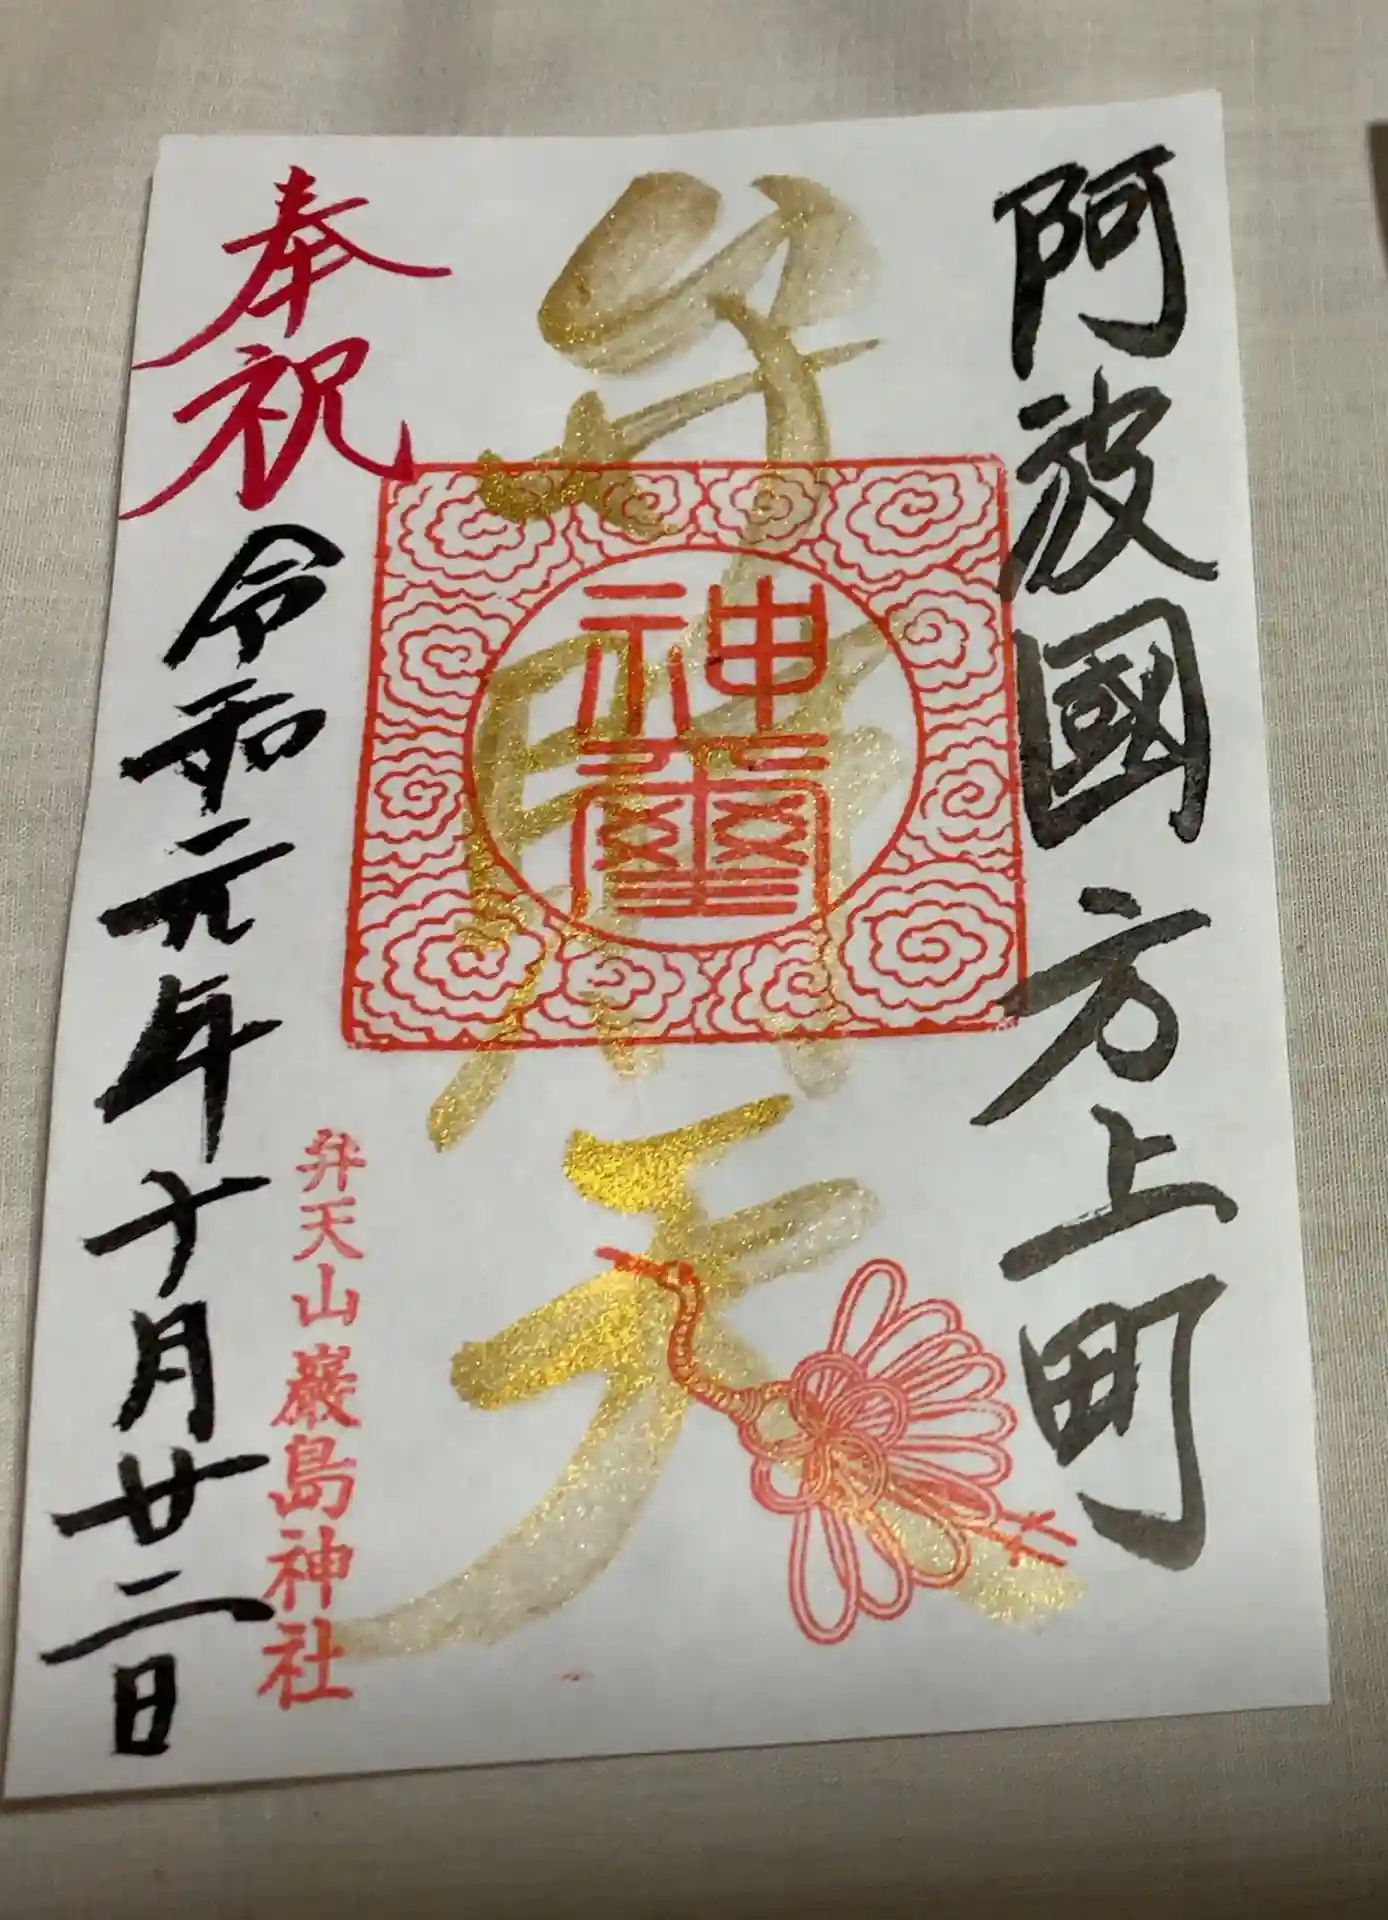 阿波國 方上町
弁財天
神璽
弁天山 巖島神社
奉祝
令和元年十月廿二日